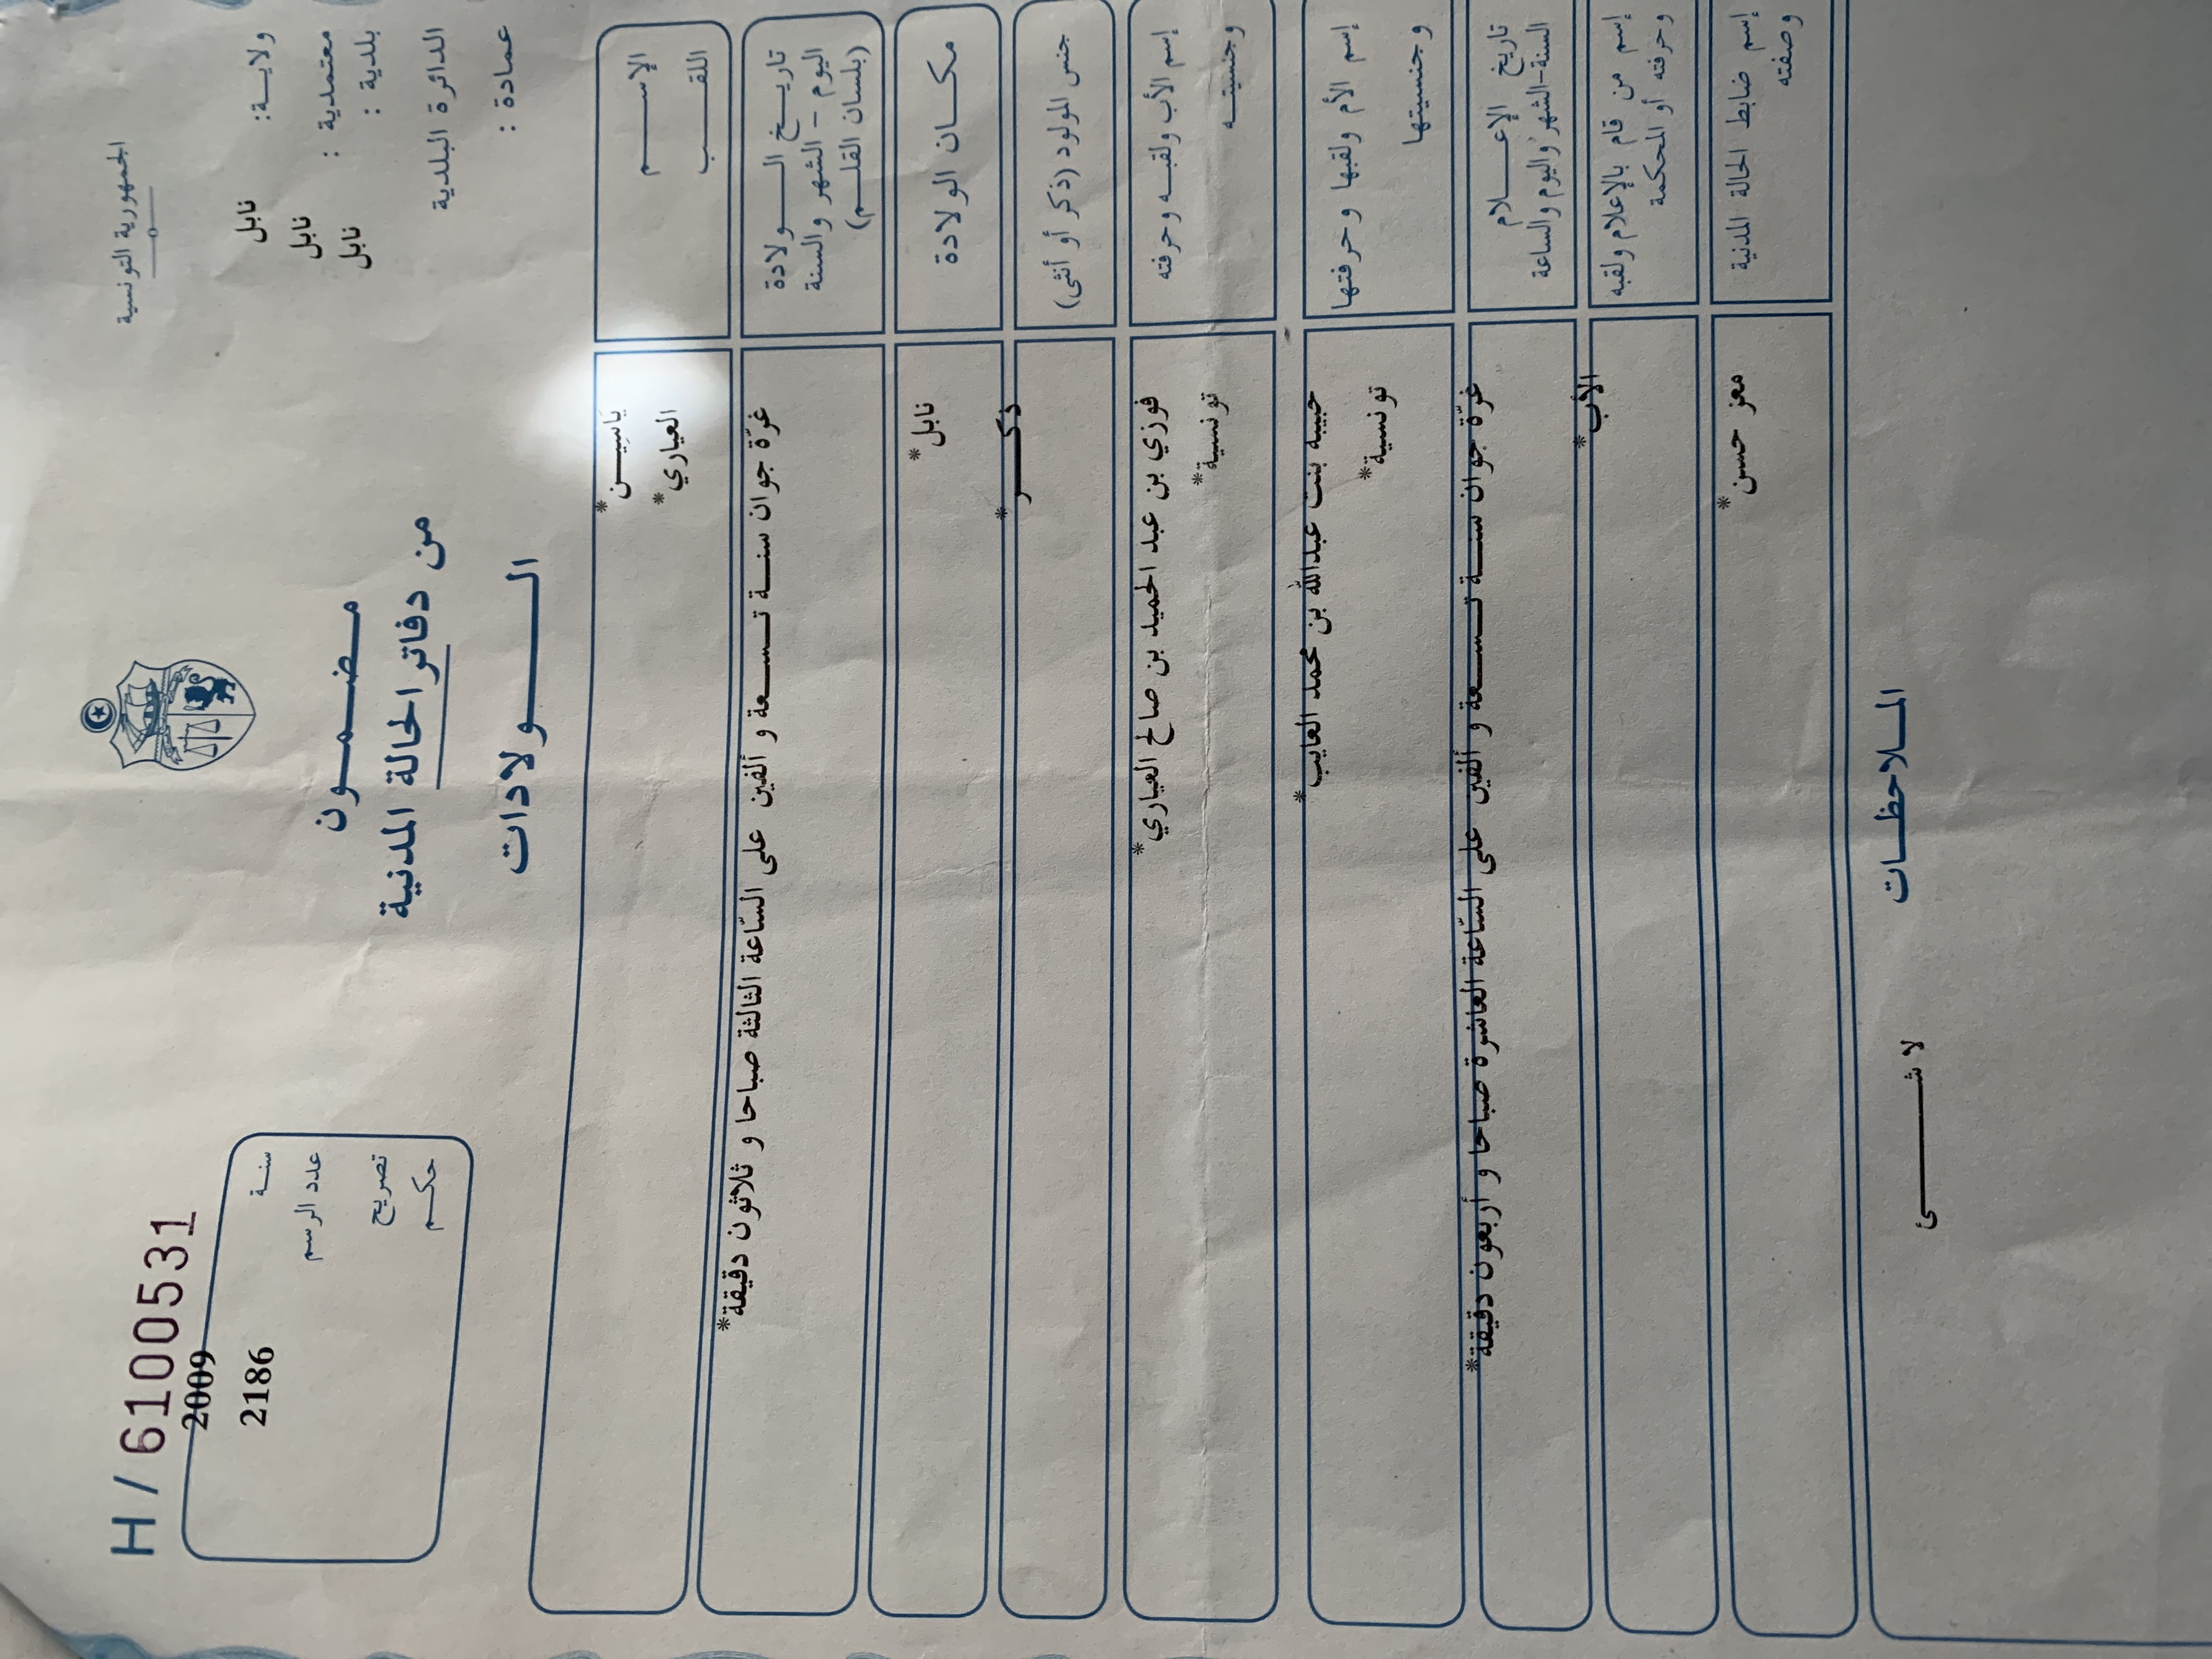 الجمهورية التونسية
ولايـة: نابل
معتمدية : نابل
بلدية : نابل
الدائرة البلدية
عمادة :
H / 6100531
2009
سنـة
2186
عدد الرسم
تصريح
حكـم
مـضـمـون
من دفاتر الحالة المدنية
الـولادات
الإســم
ياسيـن*
اللقـب
العياري*
تاريـخ الـولادة
اليوم - الشهر والسنة
(بلسان القلـم)
غرّة جوان سنـة تـسـعة و ألفين على السّاعة الثالثة صباحا و ثلاثون دقيقة*
مكـان الولادة
نابل*
جنس المولود (ذكر أو أنثى)
ذكـر*
إسم الأب ولقبـه وحرفته
فوزي بن عبد الحميد بن صالح العياري*
وجنسيتـه
تونسية*
إسم الأم ولقبها وحرفتها
حبيبه بنت عبدالله بن محمد الغايب*
وجنسيتها
تونسية*
تاريخ الإعـلام
السنة-الشهر واليوم والساعة
غرّة جوان سنـة تـسـعة و ألفين على السّاعة العاشرة صباحا و أربعون دقيقة*
إسم من قام بالإعلام ولقبه
وحرفته أو المحكمة
الأب*
إسم ضابط الحالة المدنية
وصفته
معز حسن*
المـلاحظـات
لا شـــئ